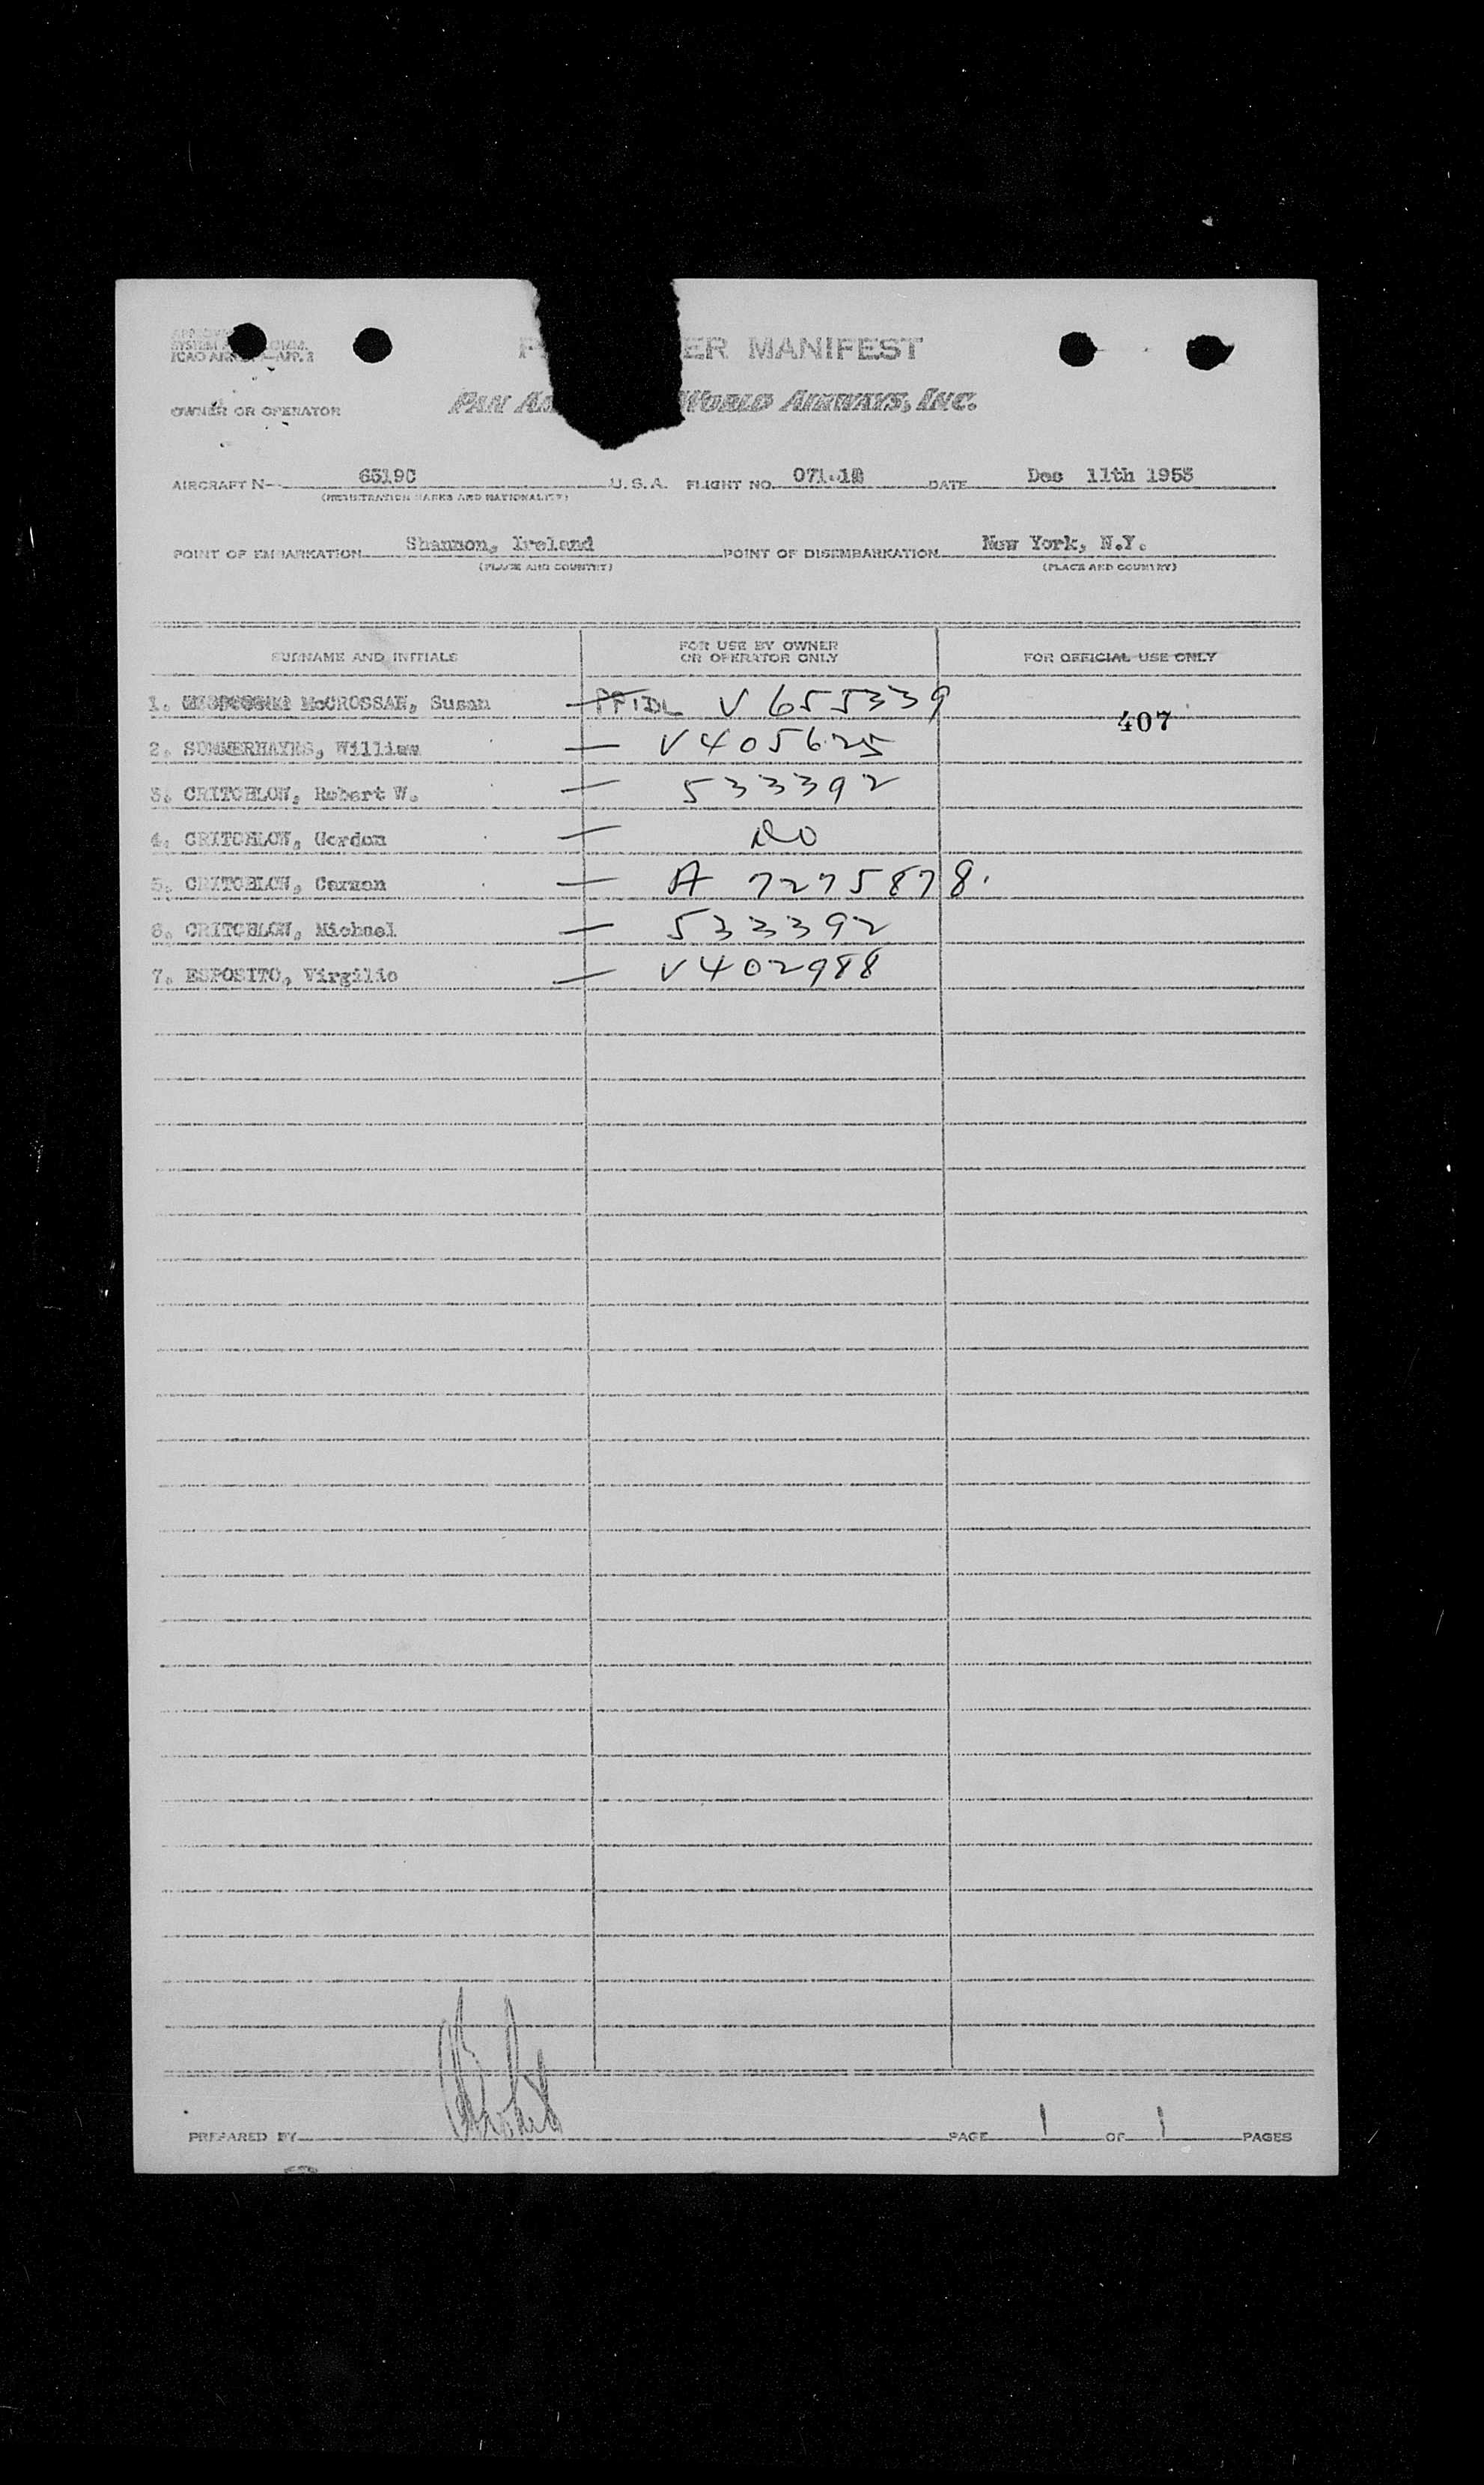 SYSTEM
ICAO —APP. 2
ER MANIFEST
OWNER OR OPERATOR PAN A WORLD AIRWAYS, INC.
AIRCRAFT N— 6519C U.S.A. FLIGHT NO. DATE Dec 11th 1953
(REGISTRATION MARKS AND NATIONALITY)
POINT OF EMBARKATION Shannon, Ireland POINT OF DISEMBARKATION New York, N.Y.
(PLACE AND COUNTRY) (PLACE AND COUNTRY)
SURNAME AND INITIALS FOR USE BY OWNER OR OPERATOR ONLY FOR OFFICIAL USE ONLY
1. McCROSSAN, Susan — V 655339
407
2. SUMMERHAYES, William — V405625
3. CRITCHLOW, Robert W. — 533392
4. CRITCHLOW, Gordon — DO
5. CRITCHLOW, Carmen — A 7275878.
6. CRITCHLOW, Michael — 533392
7. ESPOSITO, Virgilio — V402988
PREPARED BY PAGE 1 OF 1 PAGES